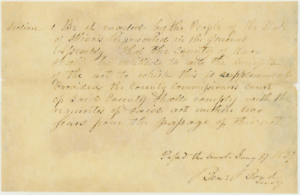 Section 1 Be it enacted by the People of the State
of Illinois Represented in the General
Assembly That the County of
shall be entitled to all the
of the act to which this is supplemental
Provided the County Commissioners Court
of said County shall comply with the
requisites of said act within two
years from the passage of this act
Passed the Senate Jany 17
Benj Bond
Secy